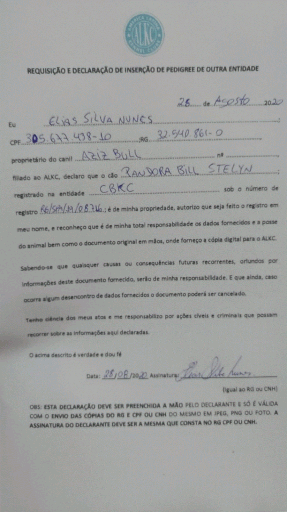 ALKC
REQUISIÇÃO E DECLARAÇÃO DE INSERÇÃO DE PEDIGREE DE OUTRA ENTIDADE
28 de Agosto 2020
Eu ELIAS SILVA NUNES
CPF 305.677.498-10 RG 32.540.861-0
proprietário do canil AZIZ BULL nº
filiado ao ALKC, declaro que o cão PANDORA BILL STELYN
registrado na entidade CBKC sob o número de
registro ; é de minha propriedade, autorizo que seja feito o registro em
meu nome, e reconheço que é de minha total responsabilidade os dados fornecidos e a posse
do animal bem como o documento original em mãos, onde forneço a cópia digital para o ALKC.
Sabendo-se que quaisquer causas ou consequências futuras recorrentes, oriundos por
informações deste documento fornecido, serão de minha responsabilidade. E que ainda, caso
ocorra algum desencontro de dados fornecidos o documento poderá ser cancelado.
Tenho ciência dos meus atos e me responsabilizo por ações cíveis e criminais que possam
recorrer sobre as informações aqui declaradas.
O acima descrito é verdade e dou fé
Data: 28/08/2020 Assinatura: Elias Silva Nunes
(Igual ao RG ou CNH)
OBS: ESTA DECLARAÇÃO DEVE SER PREENCHIDA A MÃO PELO DECLARANTE E SÓ É VÁLIDA
COM O ENVIO DAS CÓPIAS DO RG E CPF OU CNH DO MESMO EM JPEG, PNG OU FOTO. A
ASSINATURA DO DECLARANTE DEVE SER A MESMA QUE CONSTA NO RG CPF OU CNH.